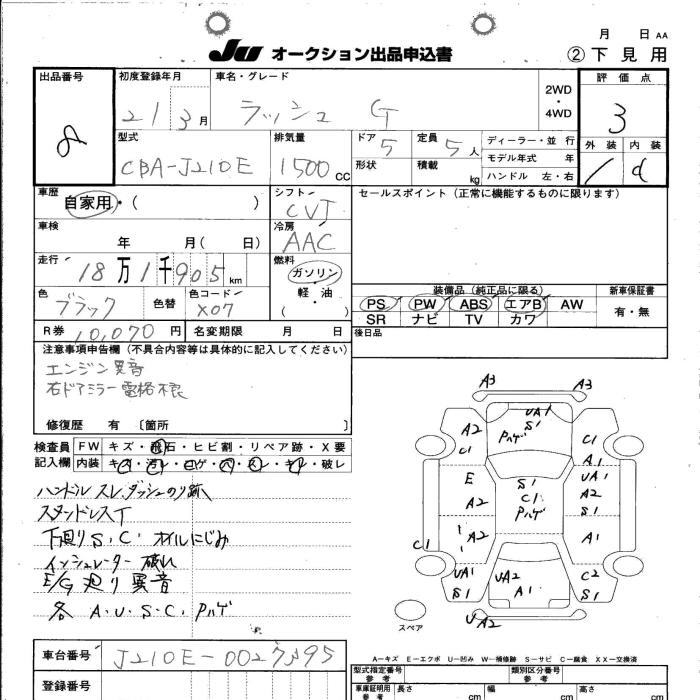 月 日 AA
JU オークション出品申込書
② 下見用
出品番号 8
初度登録年月 21 3月
車名・グレード ラッシュ G
2WD
・
4WD
評価点 3
型式 CBA-J210E
排気量 1500 CC
ドア 5
定員 5人
形状
積載 kg
ディーラー・並行
モデル年式 年
ハンドル 左・右
外装 内装
d
車歴 自家用・( )
シフト CVT
セールスポイント (正常に機能するものに限ります)
車検 年 月( 日)
冷房 AAC
走行 18万1千905 km
燃料
ガソリン
軽・油
( )
色 ブラック 色替
色コード X07
装備品 (純正品に限る)
新車保証書
PS PW ABS エアB AW
有・無
SR ナビ TV カワ
R券 10,070 円 名変期限 月 日
後日品
注意事項申告欄 (不具合内容等は具体的に記入してください)
エンジン異音
右ドアミラー電格不良
修復歴 有 〔箇所 〕
検査員 FW キズ・飛石・ヒビ割・リペア跡・X要
記入欄 内装
破レ
ハンドル スレ、ダッシュのり跡
下廻り S.C. オイルにじみ
インシュレーター 破れ
E/G 廻り 異音
各 A.U.S.C. Pハゲ
A3 A3
UA1
S1
Pハゲ
A2
C1
C1
A1
E
S1
C1
Pハゲ
UA1
A2
S1
A2
A2
A1
C1
UA1
S1
UA2
A1
C2
S1
UA2
スペア
A−キズ E−エクボ U−凹み W−補修跡 S−サビ C−腐食 XX−交換済
車台番号 J210E-0027395
登録番号
型式指定番号
参考
類別区分番号
参考
車庫証明用
参考
長さ cm
幅 cm
高さ cm